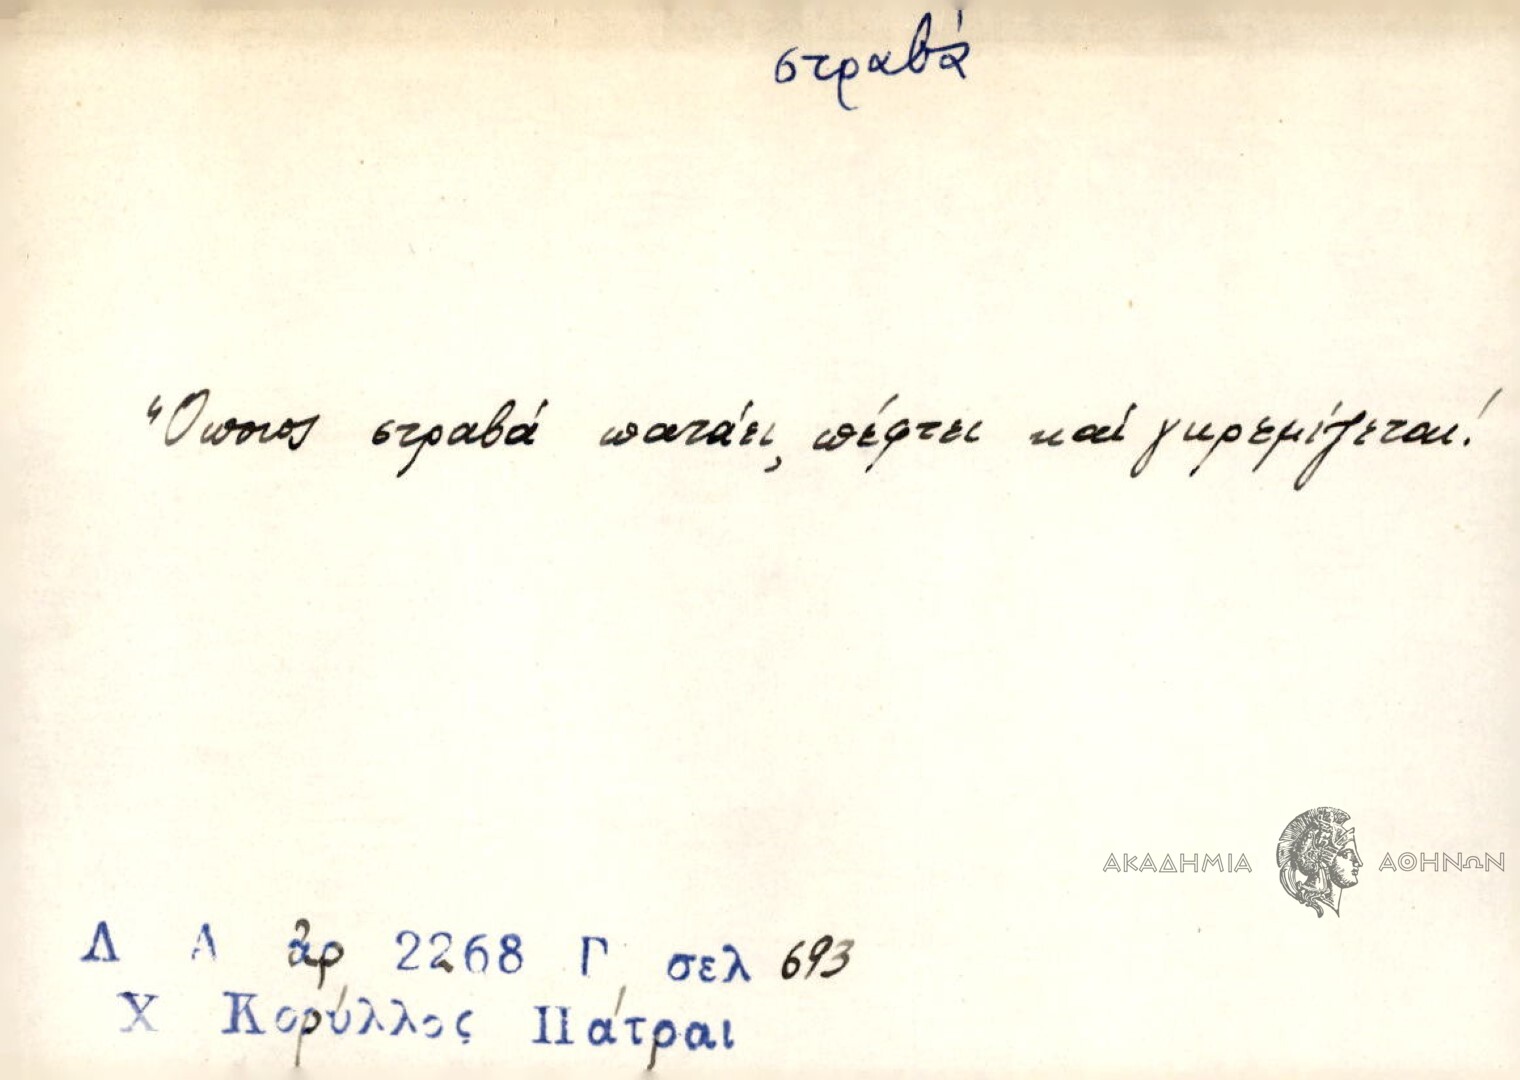 στραβά
Ὅποιος στραβά πατάει, πέφτει καί γκρεμίζεται!
ΑΚΑΔΗΜΙΑ ΑΘΗΝΩΝ
Λ Α ἀρ 2268 Γ σελ 693
Χ Κορύλλος Πάτραι